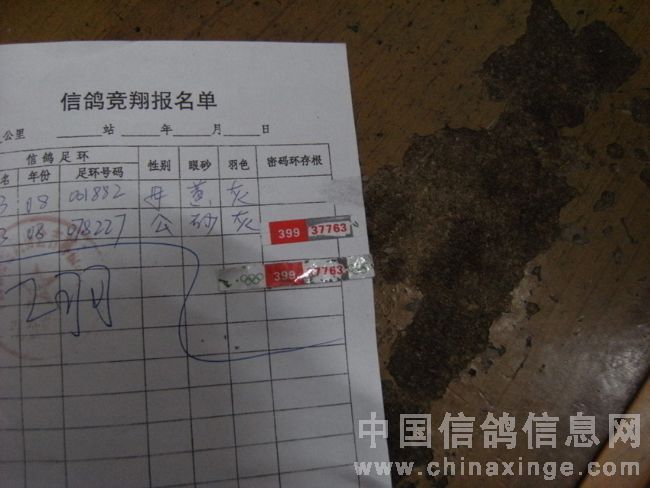 信鸽竞翔报名单
公里 站 年 月 日
信鸽足环 性别 眼砂 羽色 密码环存根
名 年份 足环号码
08 061882 母 黄 灰
08 078227 公 砂 灰
399 37763
399 37763
中国信鸽信息网
www.chinaxinge.com